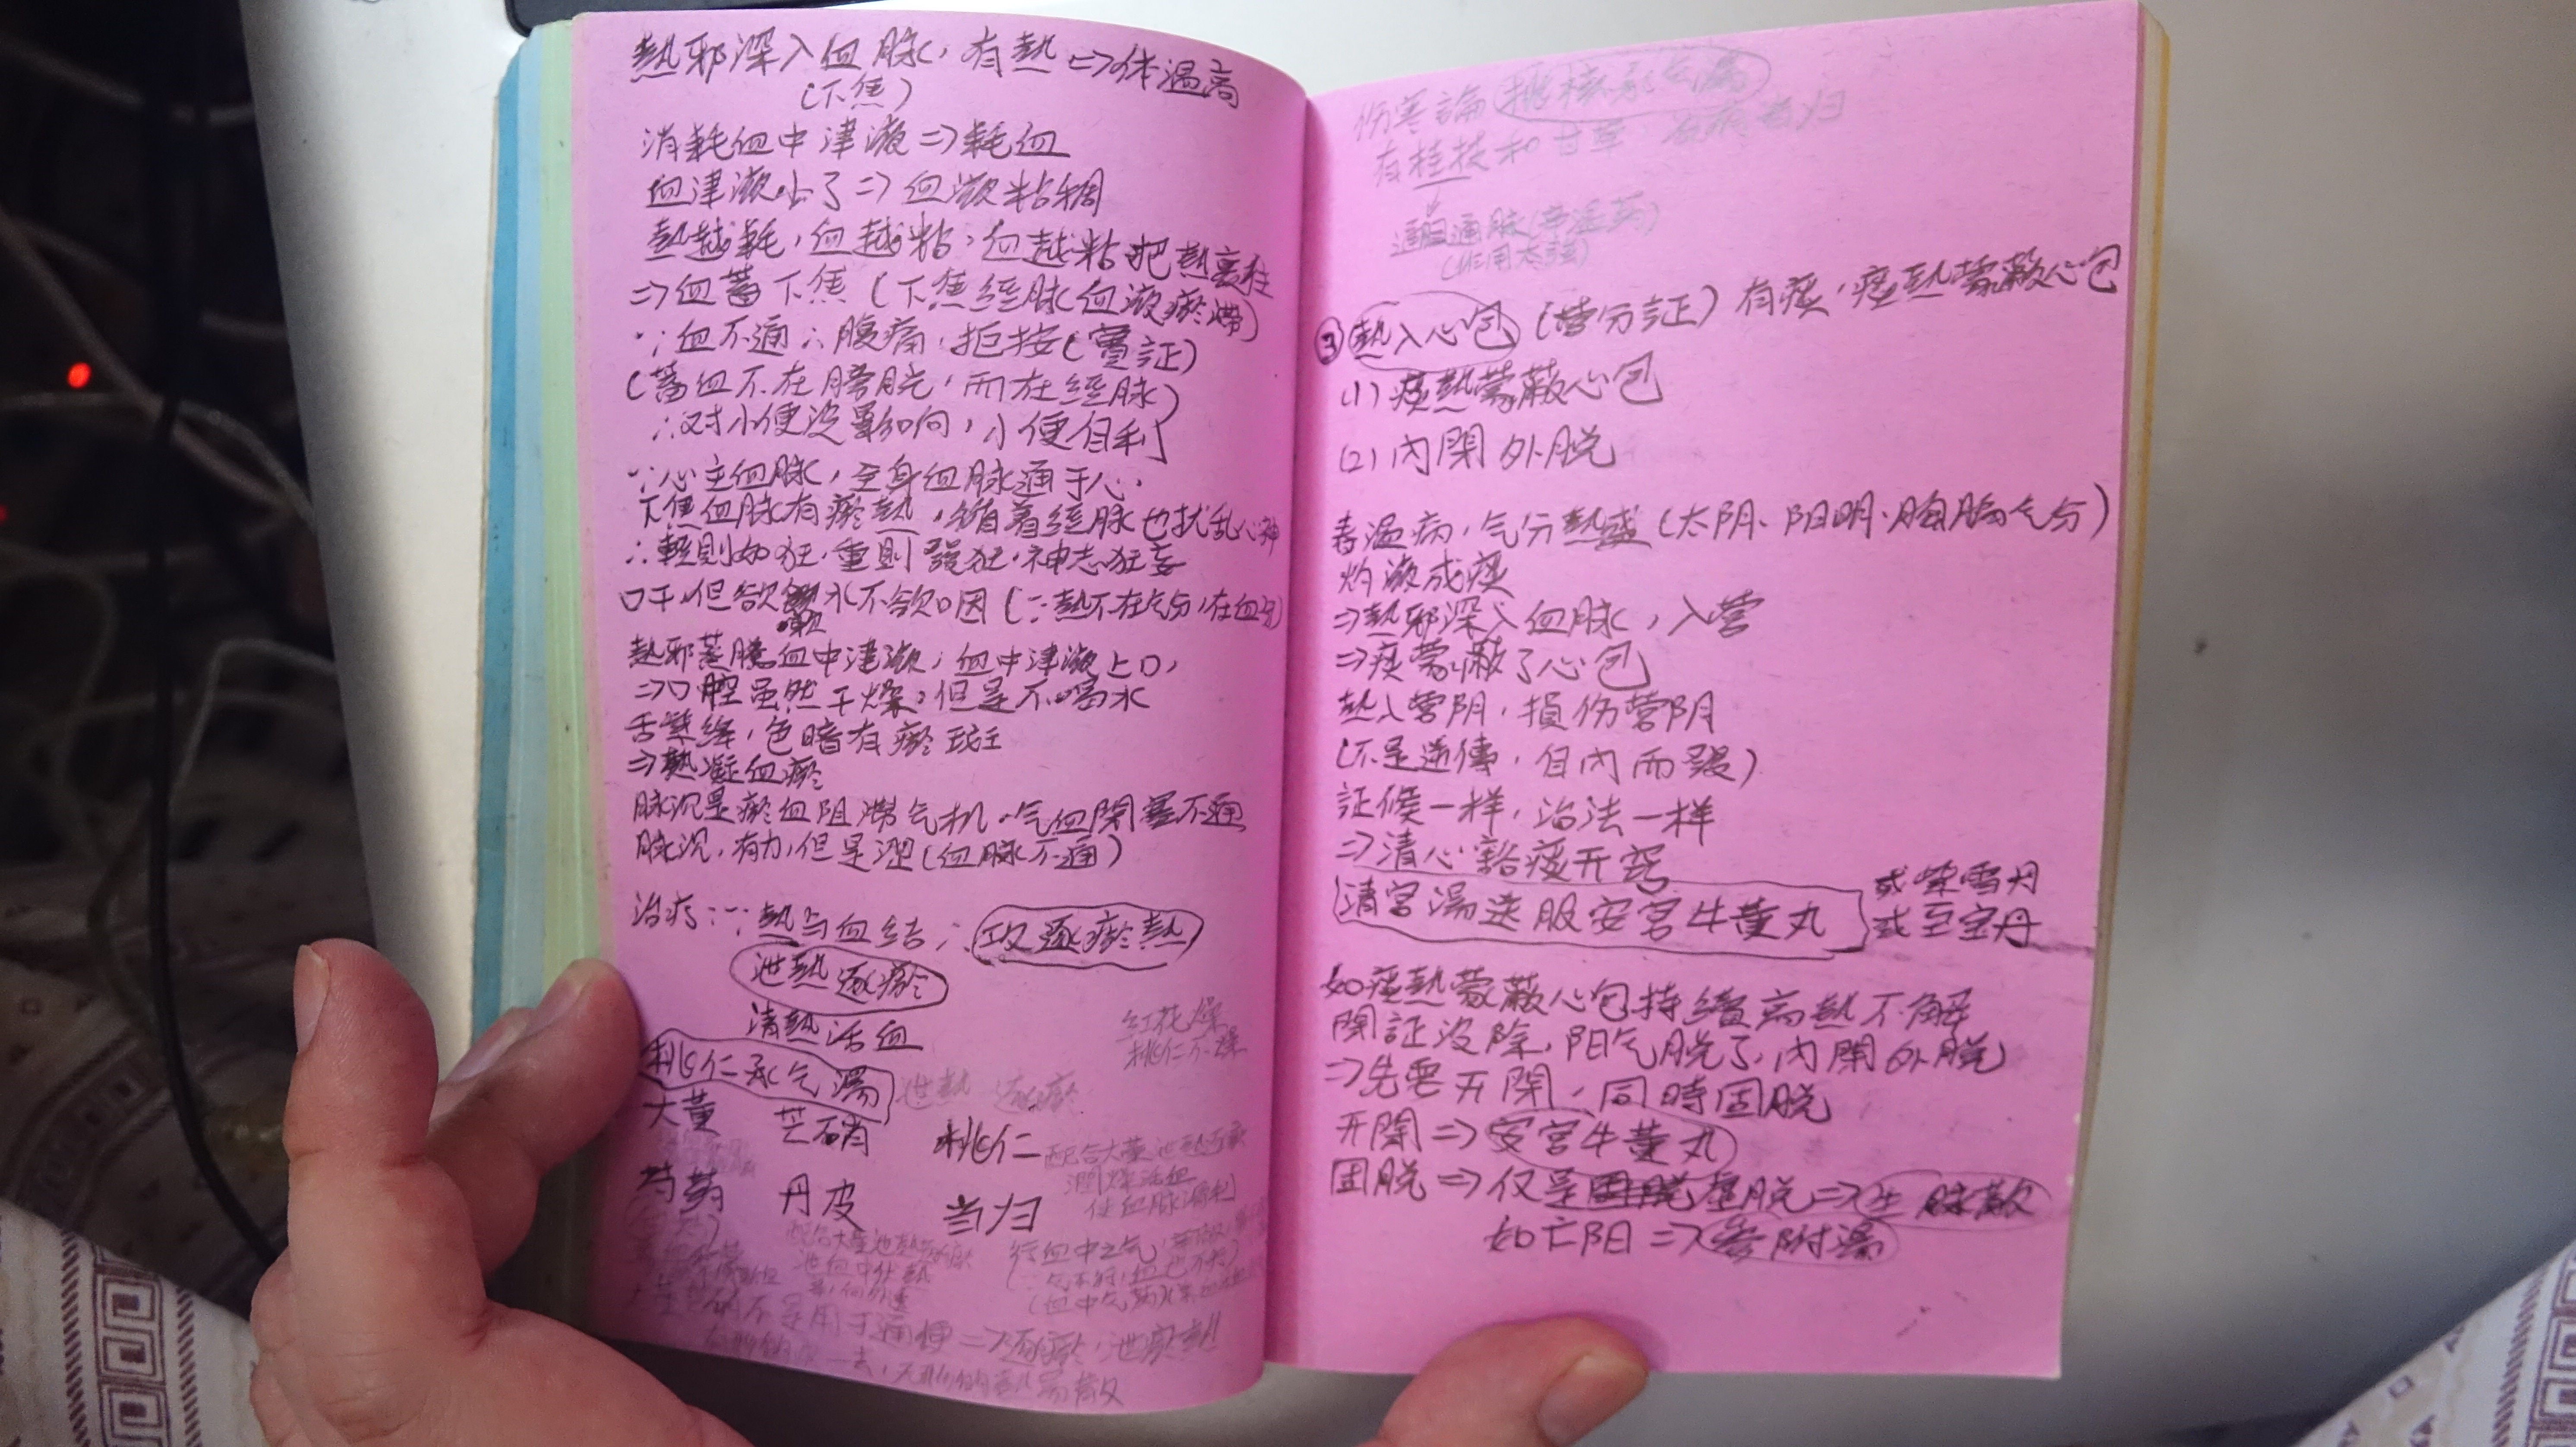 熱邪深入血脉，有熱⇒体温高
(下焦)
消耗血中津液⇒耗血
血津液少了⇒血液粘稠
熱越耗，血越粘，血越粘把熱裹住
⇒血蓄下焦(下焦經脉血液瘀滯)
∵血不通∴腹痛，拒按(實証)
(蓄血不在膀胱，而在經脉)
∴对小便没影响，小便自利
∵心主血脉，全身血脉通于心，
下焦血脉有瘀熱，循着經脉也扰乱心神
∴輕則如狂，重則發狂，神志狂妄
口干，但欲漱水不欲咽(∵熱不在气分，在血分)
熱邪蒸騰血中津液，血中津液上口，
⇒口腔虽然干燥，但是不喝水
舌紫絳，色暗有瘀斑
⇒熱凝血瘀
脉沉是瘀血阻滯气机，气血閉塞不通
脉沉，有力，但是澀(血脉不通)
治疗：∵熱与血結∴攻逐瘀熱
泄熱逐瘀
清熱活血
红花燥
桃仁不燥
桃仁承气湯 泄熱 逐瘀
大黄 芒硝 桃仁
配合大黄泄熱逐瘀
潤燥活血
使血脉滑利
芍药 丹皮 当归
配合大黄泄熱逐瘀
泄血中伏熱
行血中之气
(∵气不行，血也不行)
(血中气药)
用于通便⇒逐瘀，泄瘀熱
伤寒論 桃核承气湯
有桂枝和甘草 没有当归
↓
通陽通脉(辛温药)
(作用太强)
③熱入心包(营分証)有痰，痰熱蒙蔽心包
(1)痰熱蒙蔽心包
(2)內閉外脱
春温病，气分熱盛(太阴、阳明、胸膈气分)
灼液成痰
⇒熱邪深入血脉，入营
⇒痰蒙蔽了心包
熱入营阴，損伤营阴
(不是逆傳，自內而發)
証候一样，治法一样
⇒清心豁痰开窍
清宫湯送服安宫牛黄丸 或紫雪丹
或至宝丹
如痰熱蒙蔽心包持續高熱不解
閉証没除，阳气脱了，內閉外脱
⇒先要开閉，同時固脱
开閉⇒安宫牛黄丸
固脱⇒仅是虚脱⇒生脉散
如亡阳⇒参附湯